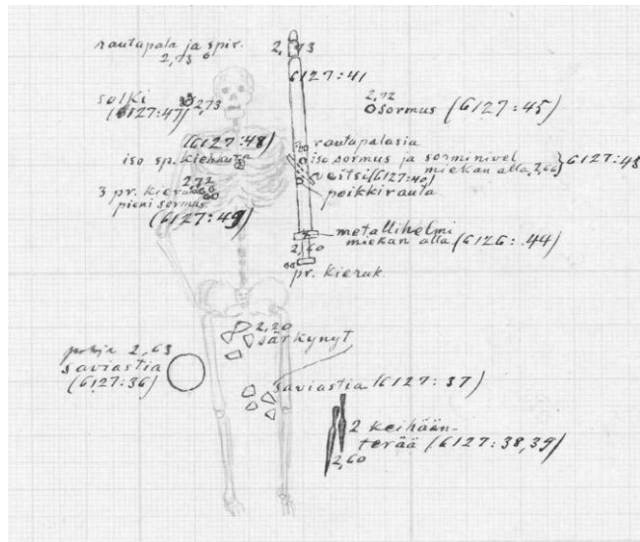 rautapala ja spir.
2,73
2,73
6127:41
solki
(6127:47)
2,73
2,72
sormus (6127:45)
(6127:48)
iso sp. kierukka
rautapalasia
iso sormus ja sorminivel
miekan alla, 2,66
veitsi (6127:40)
poikkirauta
2,72
3 pr. kieruk.
pieni sormus
(6127:49)
metallihelmi
miekan alla (6126:44)
2,60
pr. kieruk.
2,20
särkynyt
pohja 2,63
saviastia
(6127:36)
saviastia (6127:37)
2 keihään-
terää (6127:38,39)
2,60